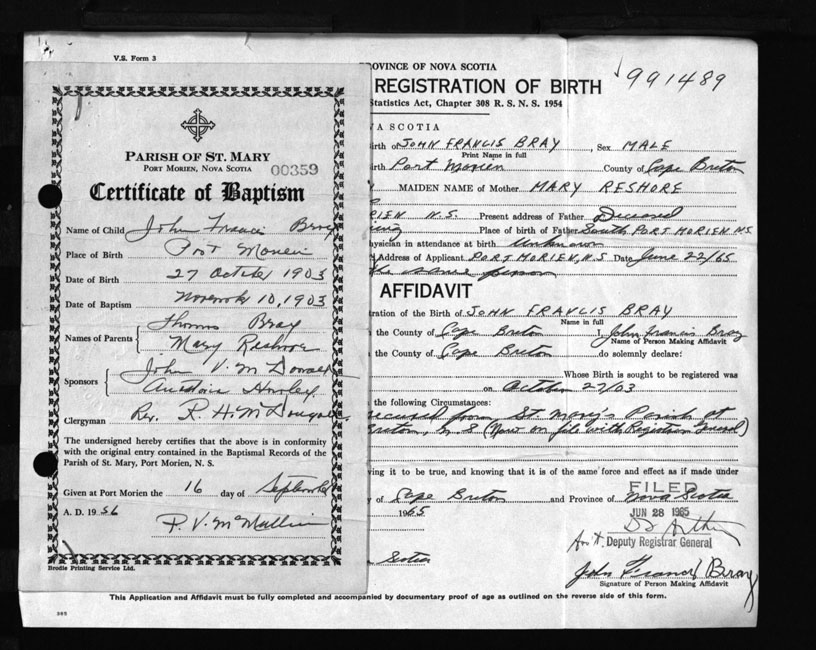 V.S. Form 3
PARISH OF ST. MARY
PORT MORIEN, NOVA SCOTIA
00359
Certificate of Baptism
Name of Child John Francis Bray
Place of Birth Port Morien
Date of Birth 27 October 1903
Date of Baptism November 10, 1903
Names of Parents { Thomas Bray
Mary Reshore
Sponsors { John V. McDonald
Hawley
Clergyman Rev. R. H. McDougall
The undersigned hereby certifies that the above is in conformity
with the original entry contained in the Baptismal Records of the
Parish of St. Mary, Port Morien, N. S.
Given at Port Morien the 16 day of September
A. D. 1956
P. V. McMullin
Brodie Printing Service Ltd.
PROVINCE OF NOVA SCOTIA
991489
REGISTRATION OF BIRTH
Statistics Act, Chapter 308 R. S. N. S. 1954
VA SCOTIA
Birth of JOHN FRANCIS BRAY , Sex MALE
Print Name in full
Birth Port Morien County of Cape Breton
MAIDEN NAME of Mother MARY RESHORE
RIEN N.S. Present address of Father Deceased
Place of birth of Father South PORT MORIEN N.S
physician in attendance at birth Unknown
Address of Applicant PORT MORIEN, N.S Date June 22/65
the same person
AFFIDAVIT
tration of the Birth of JOHN FRANCIS BRAY
Name in full
n the County of Cape Breton I, John Francis Bray
Name of Person Making Affidavit
n the County of Cape Breton do solemnly declare:
Whose Birth is sought to be registered was
on October 27/03
the following Circumstances:
received from St Mary's Parish at
Breton, N.S (Now on file with Registrar General)
ving it to be true, and knowing that it is of the same force and effect as if made under
y of Cape Breton and Province of Nova Scotia
FILED
1965
JUN 28 1965
Deputy Registrar General
Scotia
John Francis Bray
Signature of Person Making Affidavit
This Application and Affidavit must be fully completed and accompanied by documentary proof of age as outlined on the reverse side of this form.